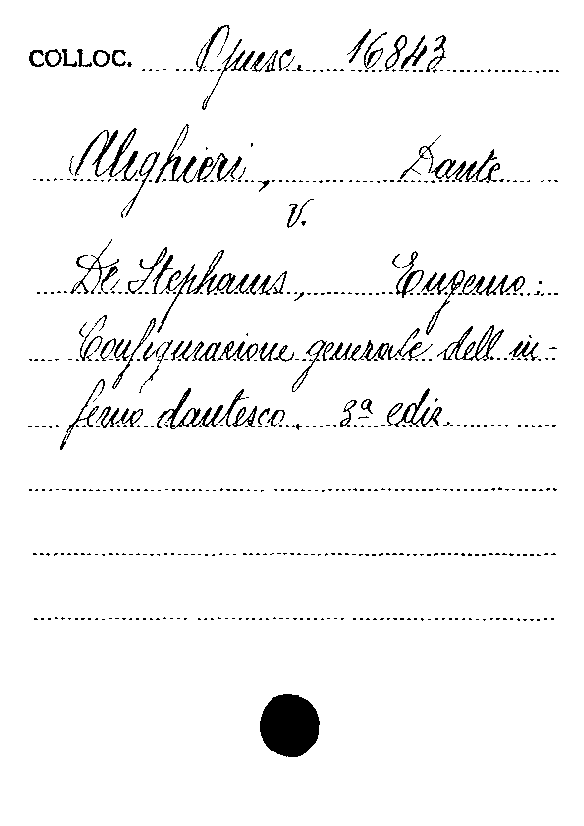 COLLOC. Opusc. 16843
Alighieri, Dante
v.
De Stephanis, Eugenio:
Configurazione generale dell'in-
ferno dantesco. 3ª ediz.